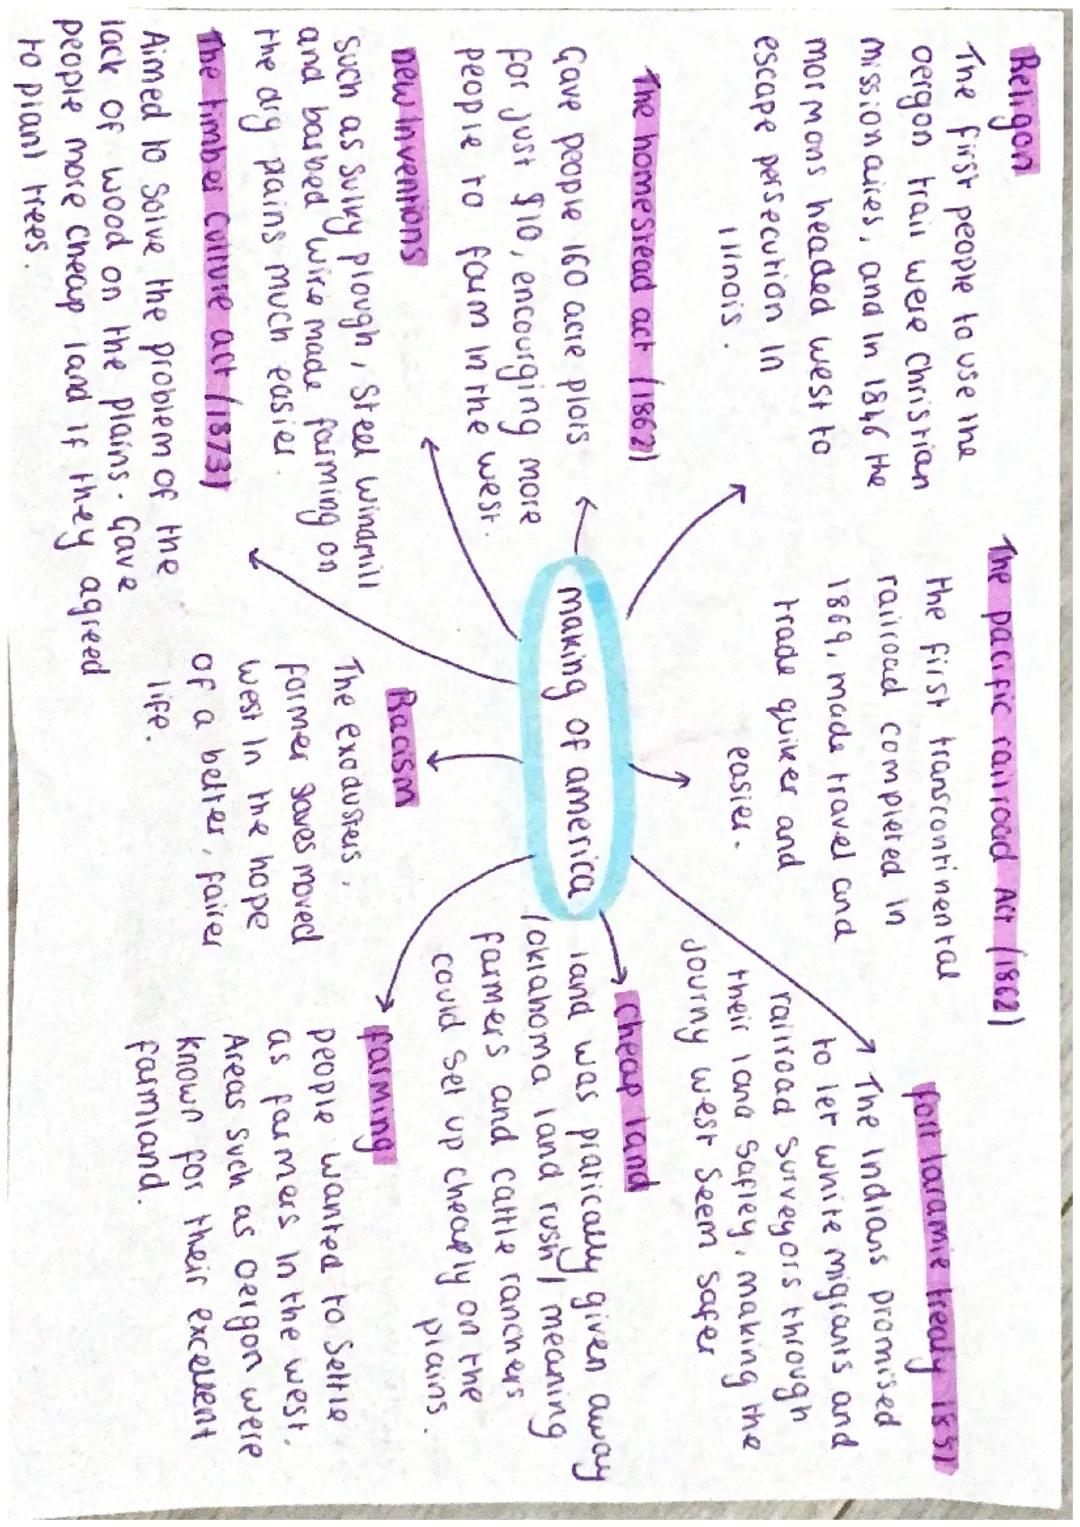 Religon
The first people to use the
oergon trail were Christian
missionaires, and in 1846 the
mormons headed west to
escape persecution in
illnois.
The pacific railroad Act (1862)
the first transcontinental
railroad completed in
1869, made travel and
trade quiker and
easier.
fort laramie treaty 1851
The Indians promised
to let white migrants and
railroad surveyors through
their land safley, making the
journy west seem safer
The homestead act (1862)
Gave people 160 acre plots
for just $10, encourging more
people to farm in the west.
making of america
cheap land
land was pratically given away
(oklahoma land rush) meaning
farmers and cattle ranchers
could set up cheaply on the
plains.
new inventions
Such as Sulky plough, Steel windmill
and barbed wire made farming on
the dry plains much easier.
Racism
The exodusters,
former slaves moved
west in the hope
of a better, fairer
life.
farming
people wanted to settle
as farmers in the west.
Areas such as oergon were
known for their excellent
farmland.
The timber culture act (1873)
Aimed to solve the problem of the
lack of wood on the plains. Gave
people more cheap land if they agreed
to plant trees.